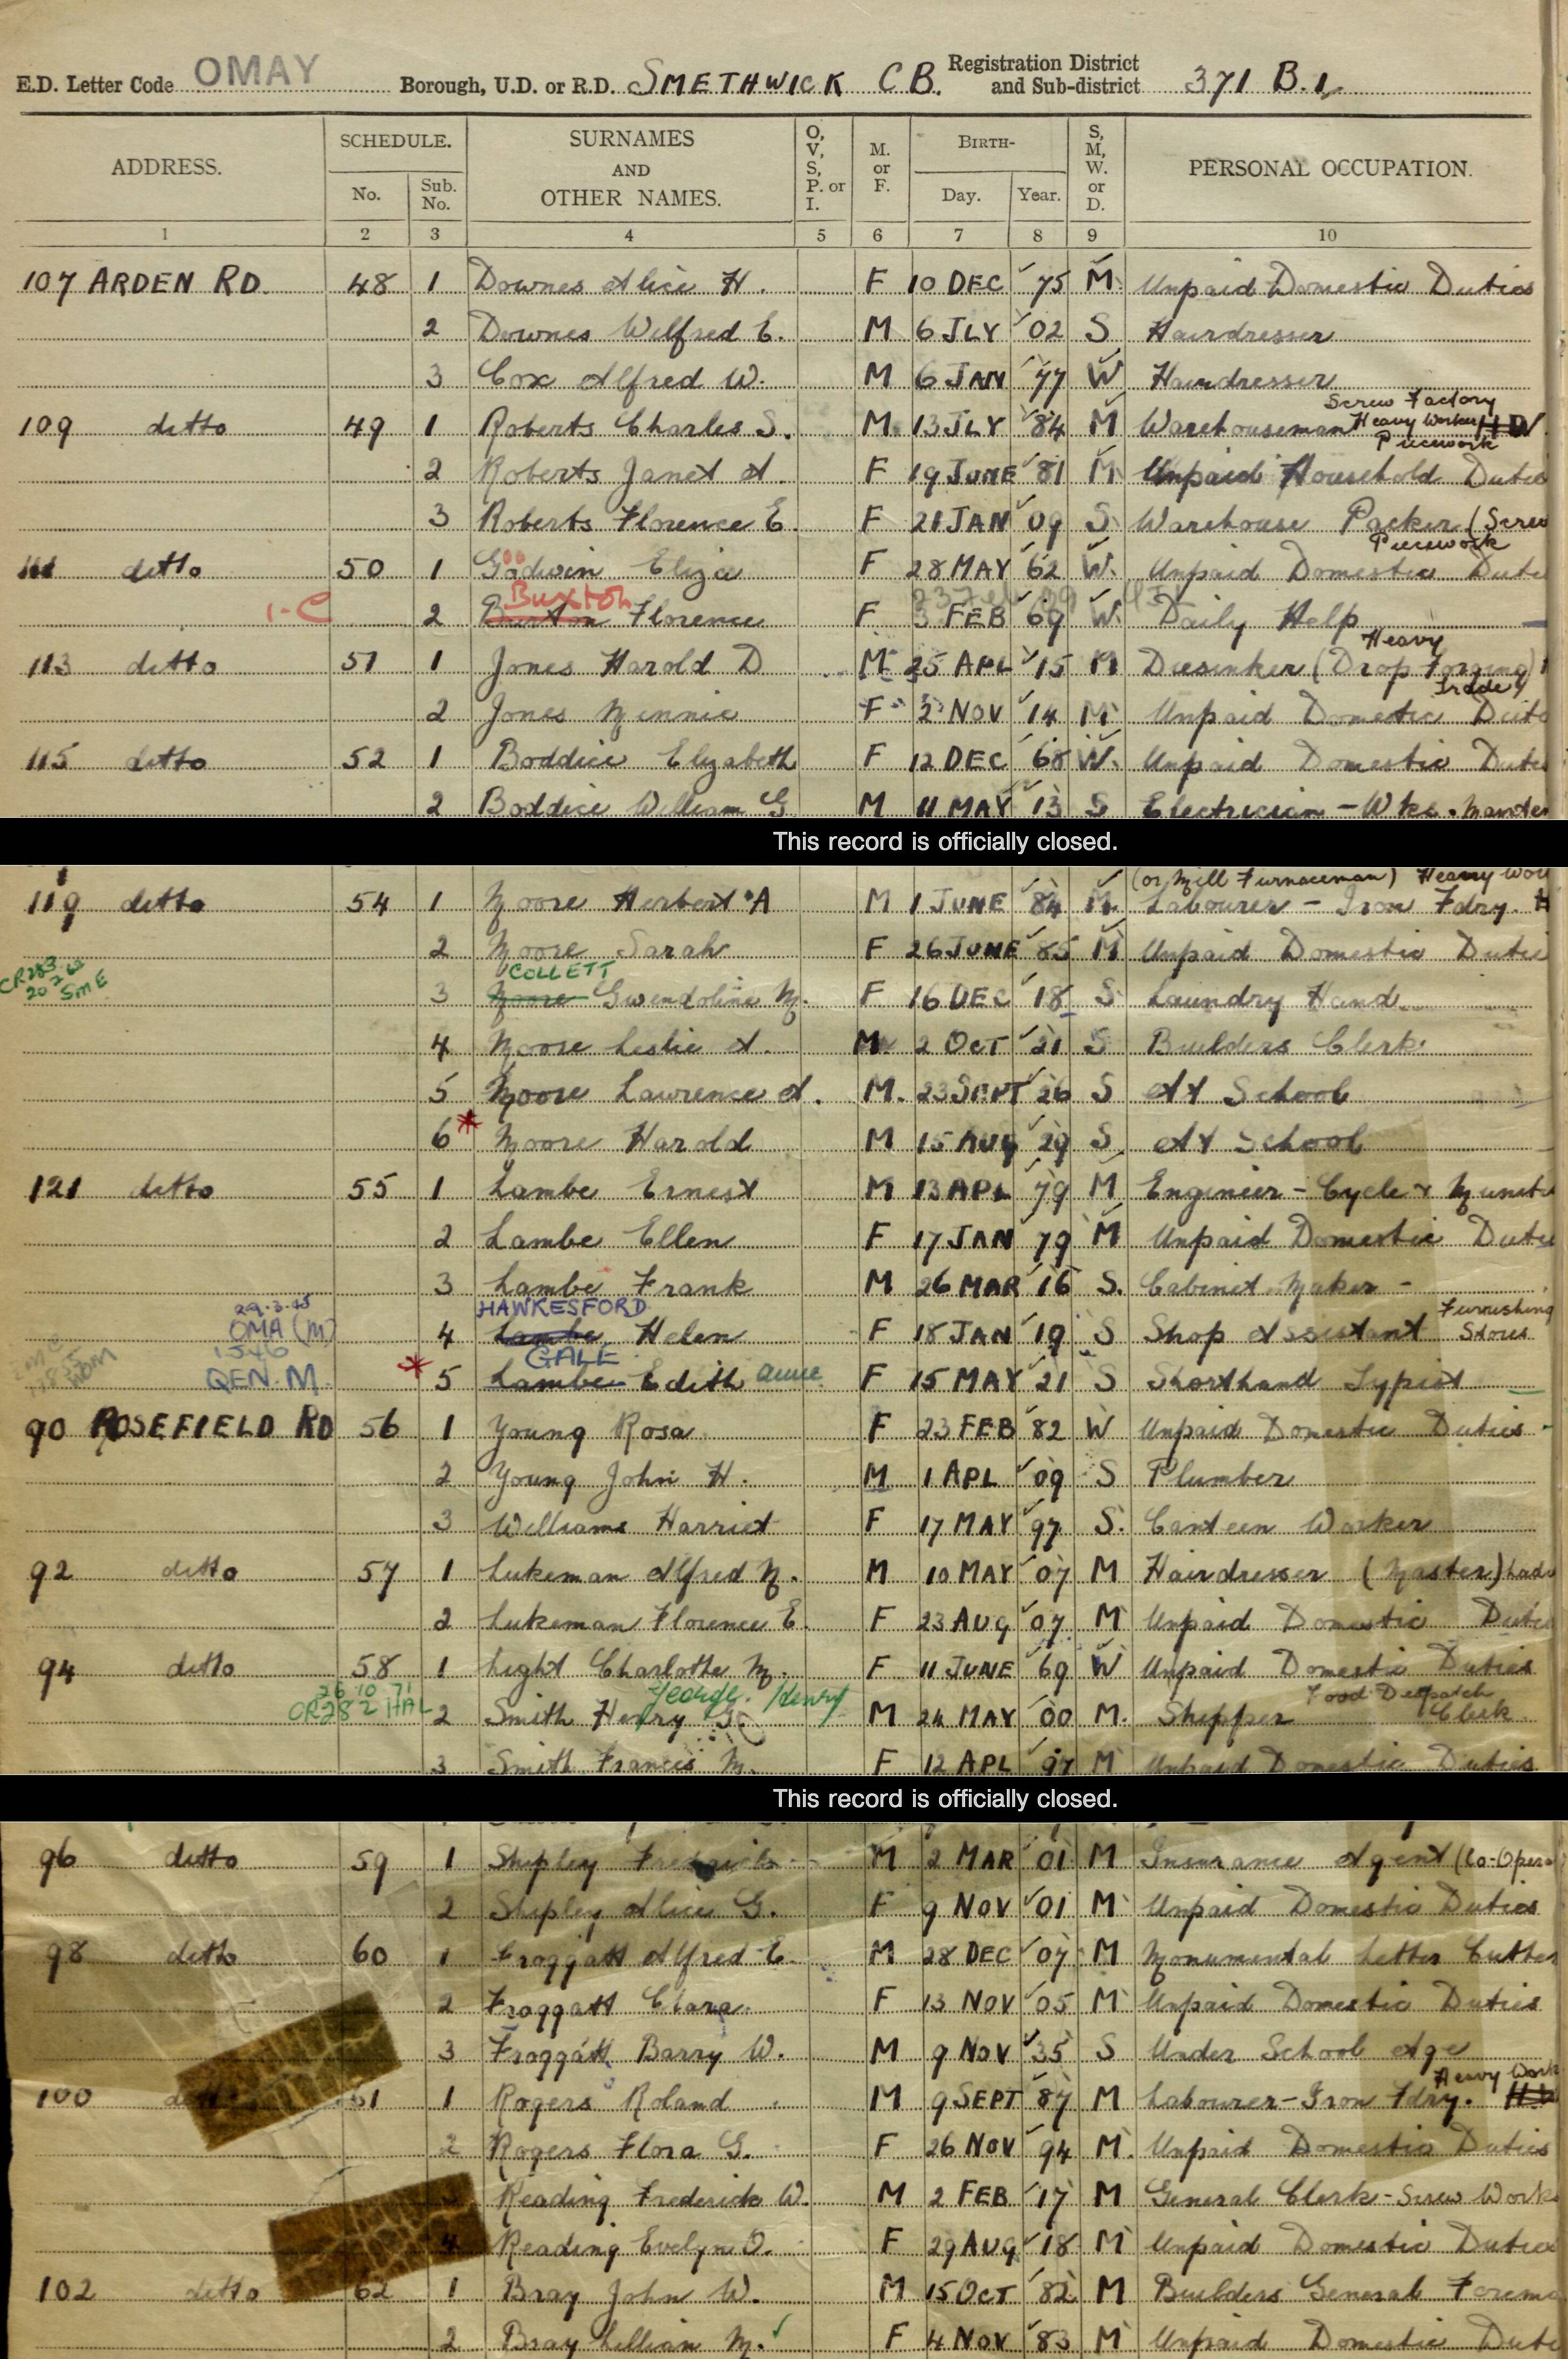 E.D. Letter Code OMAY Borough, U.D. or R.D. SMETHWICK C B. Registration District and Sub-district 371 B.1
ADDRESS. SCHEDULE. No. Sub. No. SURNAMES AND OTHER NAMES. O, V, S, P. or I. M. or F. BIRTH- Day. Year. S, M, W. or D. PERSONAL OCCUPATION.
1 2 3 4 5 6 7 8 9 10
107 ARDEN RD. 48 1 Downes Alice H. F 10 DEC 75 M. Unpaid Domestic Duties
2 Downes Wilfred E. M 6 JLY 02 S Hairdresser
3 Cox Alfred W. M 6 JAN 77 W Hairdresser
Screw Factory
109 ditto 49 1 Roberts Charles S. M. 13 JLY 84 M Warehouseman Heavy Worker H W
Piecework
2 Roberts Janet A. F 19 JUNE 81 M Unpaid Household Dutie
3 Roberts Florence E. F 21 JAN 09 S Warehouse Packer (Screw
Piecework
111 ditto 50 1 Godwin Eliza F 28 MAY 62 W. Unpaid Domestic Dutie
1-C Buxton
2 Burton Florence F 3 FEB 69 W. Daily Help
Heavy
113 ditto 51 1 Jones Harold D M 25 APL 15 M Diesinker (Drop Forging)
Trade
2 Jones Minnie F 2 NOV 14 M Unpaid Domestic Duti
115 ditto 52 1 Boddice Elizabeth F 12 DEC 68 W. Unpaid Domestic Duti
2 Boddice William G M 11 MAY 13 S Electrician - Wks.
This record is officially closed.
(or Mill Furnaceman) Heavy Wor
119 ditto 54 1 Moore Herbert A M 1 JUNE 84 M. Labourer - Iron Fdry. H
2 Moore Sarah F 26 JUNE 85 M Unpaid Domestic Dutie
CR283 SmE COLLETT
3 Moore Gwendoline M. F 16 DEC 18 S Laundry Hand
4 Moore Leslie A. M. 2 OCT 21 S Builders Clerk.
5 Moore Lawrence A. M. 23 SEPT 26 S At School
6 * Moore Harold M 15 AUG 29 S At School
121 ditto 55 1 Lambe Ernest M 13 APL 79 M Engineer - Cycle & Muniti
2 Lambe Ellen F 17 JAN 79 M Unpaid Domestic Dutie
3 Lambe Frank M 26 MAR 16 S. Cabinet Maker -
29.3.45 HAWKESFORD Furnishing
OMA (M) 4 Lambe Helen F 18 JAN 19 S Shop Assistant Stores
GALE
QEN. M. * 5 Lambe Edith Anne F 15 MAY 21 S Shorthand Typist
90 ROSEFIELD RD 56 1 Young Rosa F 23 FEB 82 W Unpaid Domestic Duties
2 Young John H. M 1 APL 09 S Plumber
3 Williams Harriet F 17 MAY 97 S. Canteen Worker
92 ditto 57 1 Lukeman Alfred M. M 10 MAY 07 M Hairdresser (Master) Ladi
2 Lukeman Florence E F 23 AUG 07 M Unpaid Domestic Dutie
94 ditto 58 1 Light Charlotte M. F 11 JUNE 69 W Unpaid Domestic Duties
26 10 71 George Henry Food Despatch
CR282 HAL 2 Smith Henry G M 24 MAY 00 M. Shipper Clerk
3 Smith Frances M. F 12 APL 97 M Unpaid Domestic Duties
This record is officially closed.
96 ditto 59 1 Shipley Fredrick M 2 MAR 01 M Insurance Agent (Co-Opera
2 Shipley Alice G. F 9 NOV 01 M Unpaid Domestic Duties
98 ditto 60 1 Froggatt Alfred E. M 28 DEC 07 M Monumental Letter Cutter
2 Froggatt Clara F 13 NOV 05 M Unpaid Domestic Duties
3 Froggatt Barry W. M 9 NOV 35 S Under School Age
Heavy Work
100 ditto 61 1 Rogers Roland M 9 SEPT 87 M Labourer - Iron Fdry. H W
2 Rogers Flora G. F 26 NOV 94 M. Unpaid Domestic Duties
Reading Frederick W. M 2 FEB 17 M General Clerk - Screw Works
4 Reading Evelyn O. F 29 AUG 18 M Unpaid Domestic Duties
102 ditto 62 1 Bray John W. M 15 OCT 82 M Builders General Forema
2 Bray Lillian M. F 4 NOV 83 M Unpaid Domestic Dutie